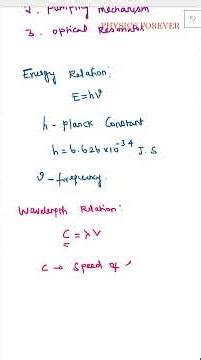 2. pumping mechanism
3. optical Resonator
PHYSICS FOREVER
Energy Relation:
E=hν
h - planck Constant
h = 6.626 × 10⁻³⁴ J.S
ν - frequency.
Wavelength Relation:
C = λν
C → Speed of